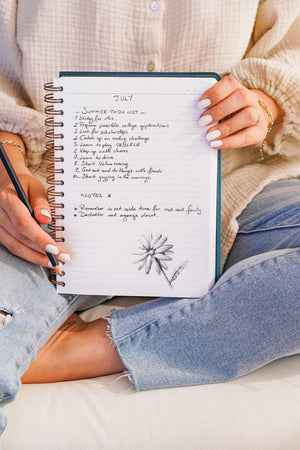 JULY
— SUMMER TO DO LIST —
1. Study for
2. Prepare possible college applications
3. Look for scholarships
4. Catch up on reading challenge
5. Learn to play UKULELE
6. Keep up with chores
7. Learn to drive
8. Start Volunteering
9. Get out and do things with friends
10. Start going in the mornings
NOTES *
* Remember to set aside time for rest and family
* Declutter and organize closet.